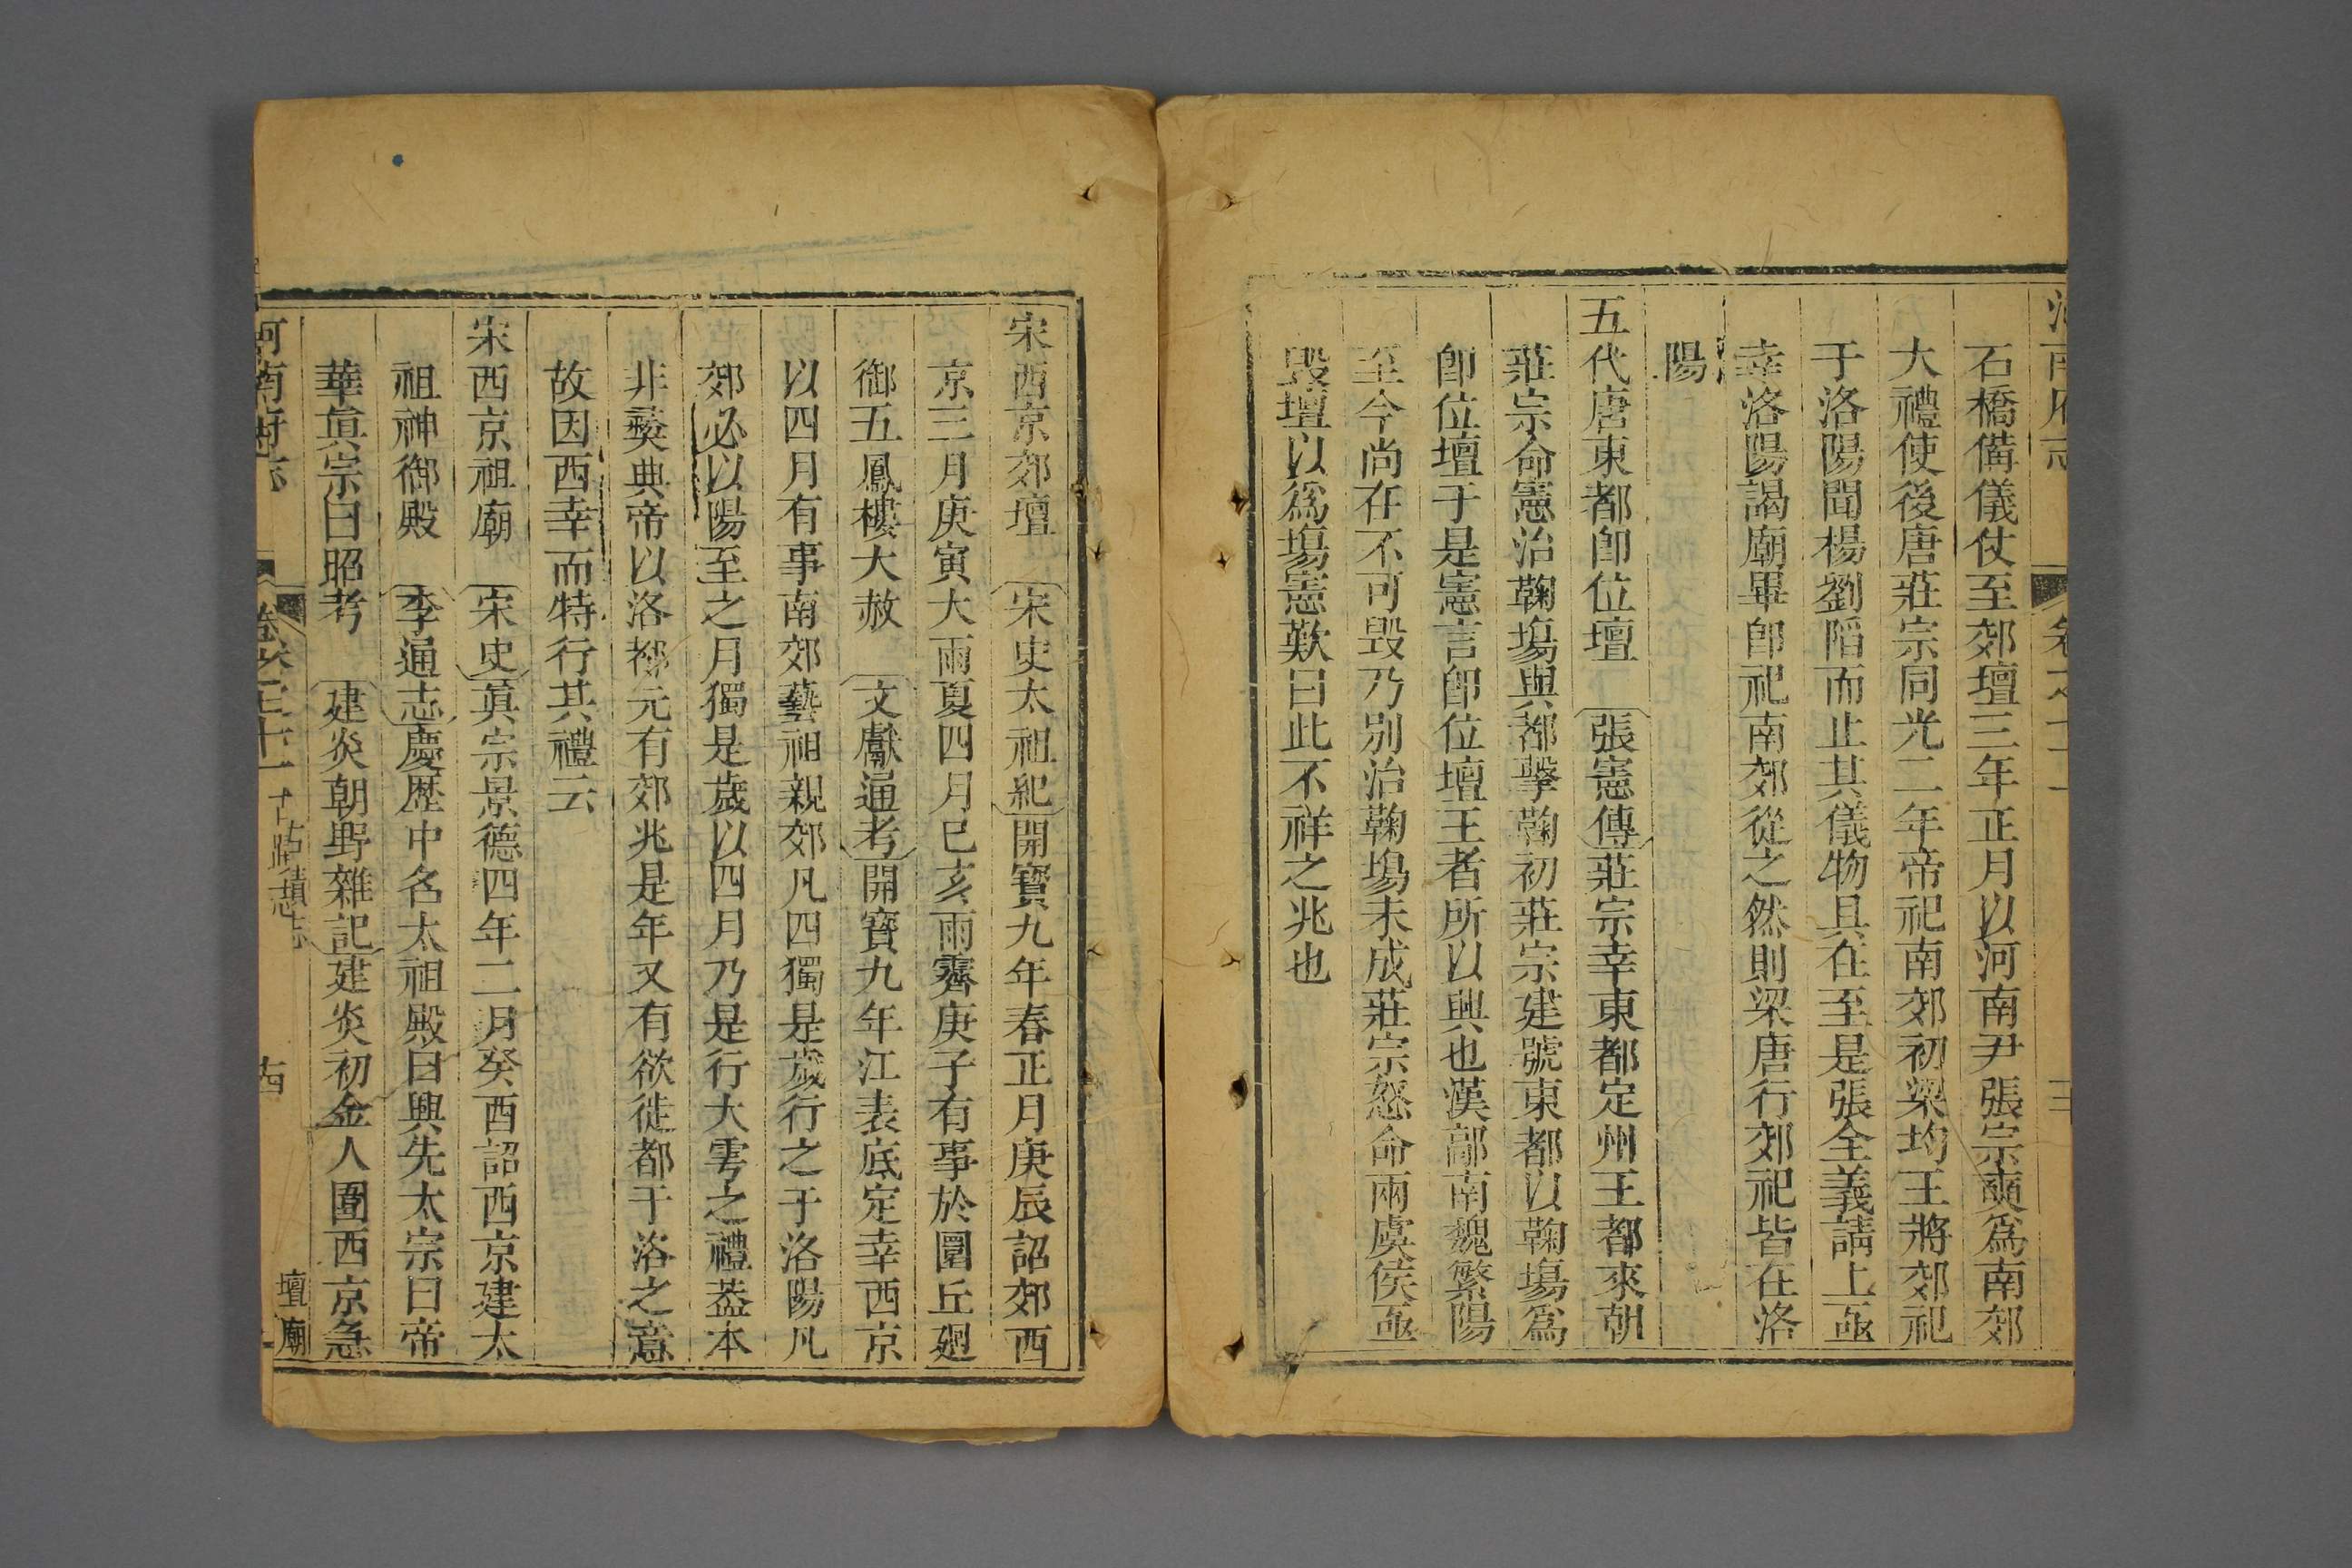 河南府志 卷之
石橋備儀仗至郊壇三年正月以河南尹張宗奭爲南郊
大禮使後唐莊宗同光二年帝祀南郊初梁均王將郊祀
于洛陽聞楊劉陷而止其儀物具在至是張全義請上亟
幸洛陽謁廟畢卽祀南郊從之然則梁唐行郊祀皆在洛
陽
五代唐東都卽位壇 張憲傳莊宗幸東都定州王都來朝
莊宗命憲治鞠塲與都擊鞠初莊宗建號東都以鞠塲爲
卽位壇于是憲言卽位壇王者所以興也漢鄗南魏繁陽
至今尚在不可毀乃別治鞠塲未成莊宗怒命兩虞侯亟
毀壇以爲塲憲歎曰此不祥之兆也
宋西京郊壇 宋史太祖紀開寶九年春正月庚辰詔郊西
京三月庚寅大雨夏四月已亥雨霽庚子有事於圜丘廻
御五鳳樓大赦 文獻通考開寶九年江表底定幸西京
以四月有事南郊藝祖親郊凡四獨是歲行之于洛陽凡
郊必以陽至之月獨是歲以四月乃是行大雩之禮葢本
非彞典帝以洛都元有郊兆是年又有欲徙都于洛之意
故因西幸而特行其禮云
宋西京祖廟 宋史眞宗景德四年二月癸酉詔西京建太
祖神御殿 李通志慶歷中名太祖殿曰興先太宗曰帝
華眞宗曰昭考 建炎朝野雜記建炎初金人圍西京急
河南府志 古蹟志 壇廟